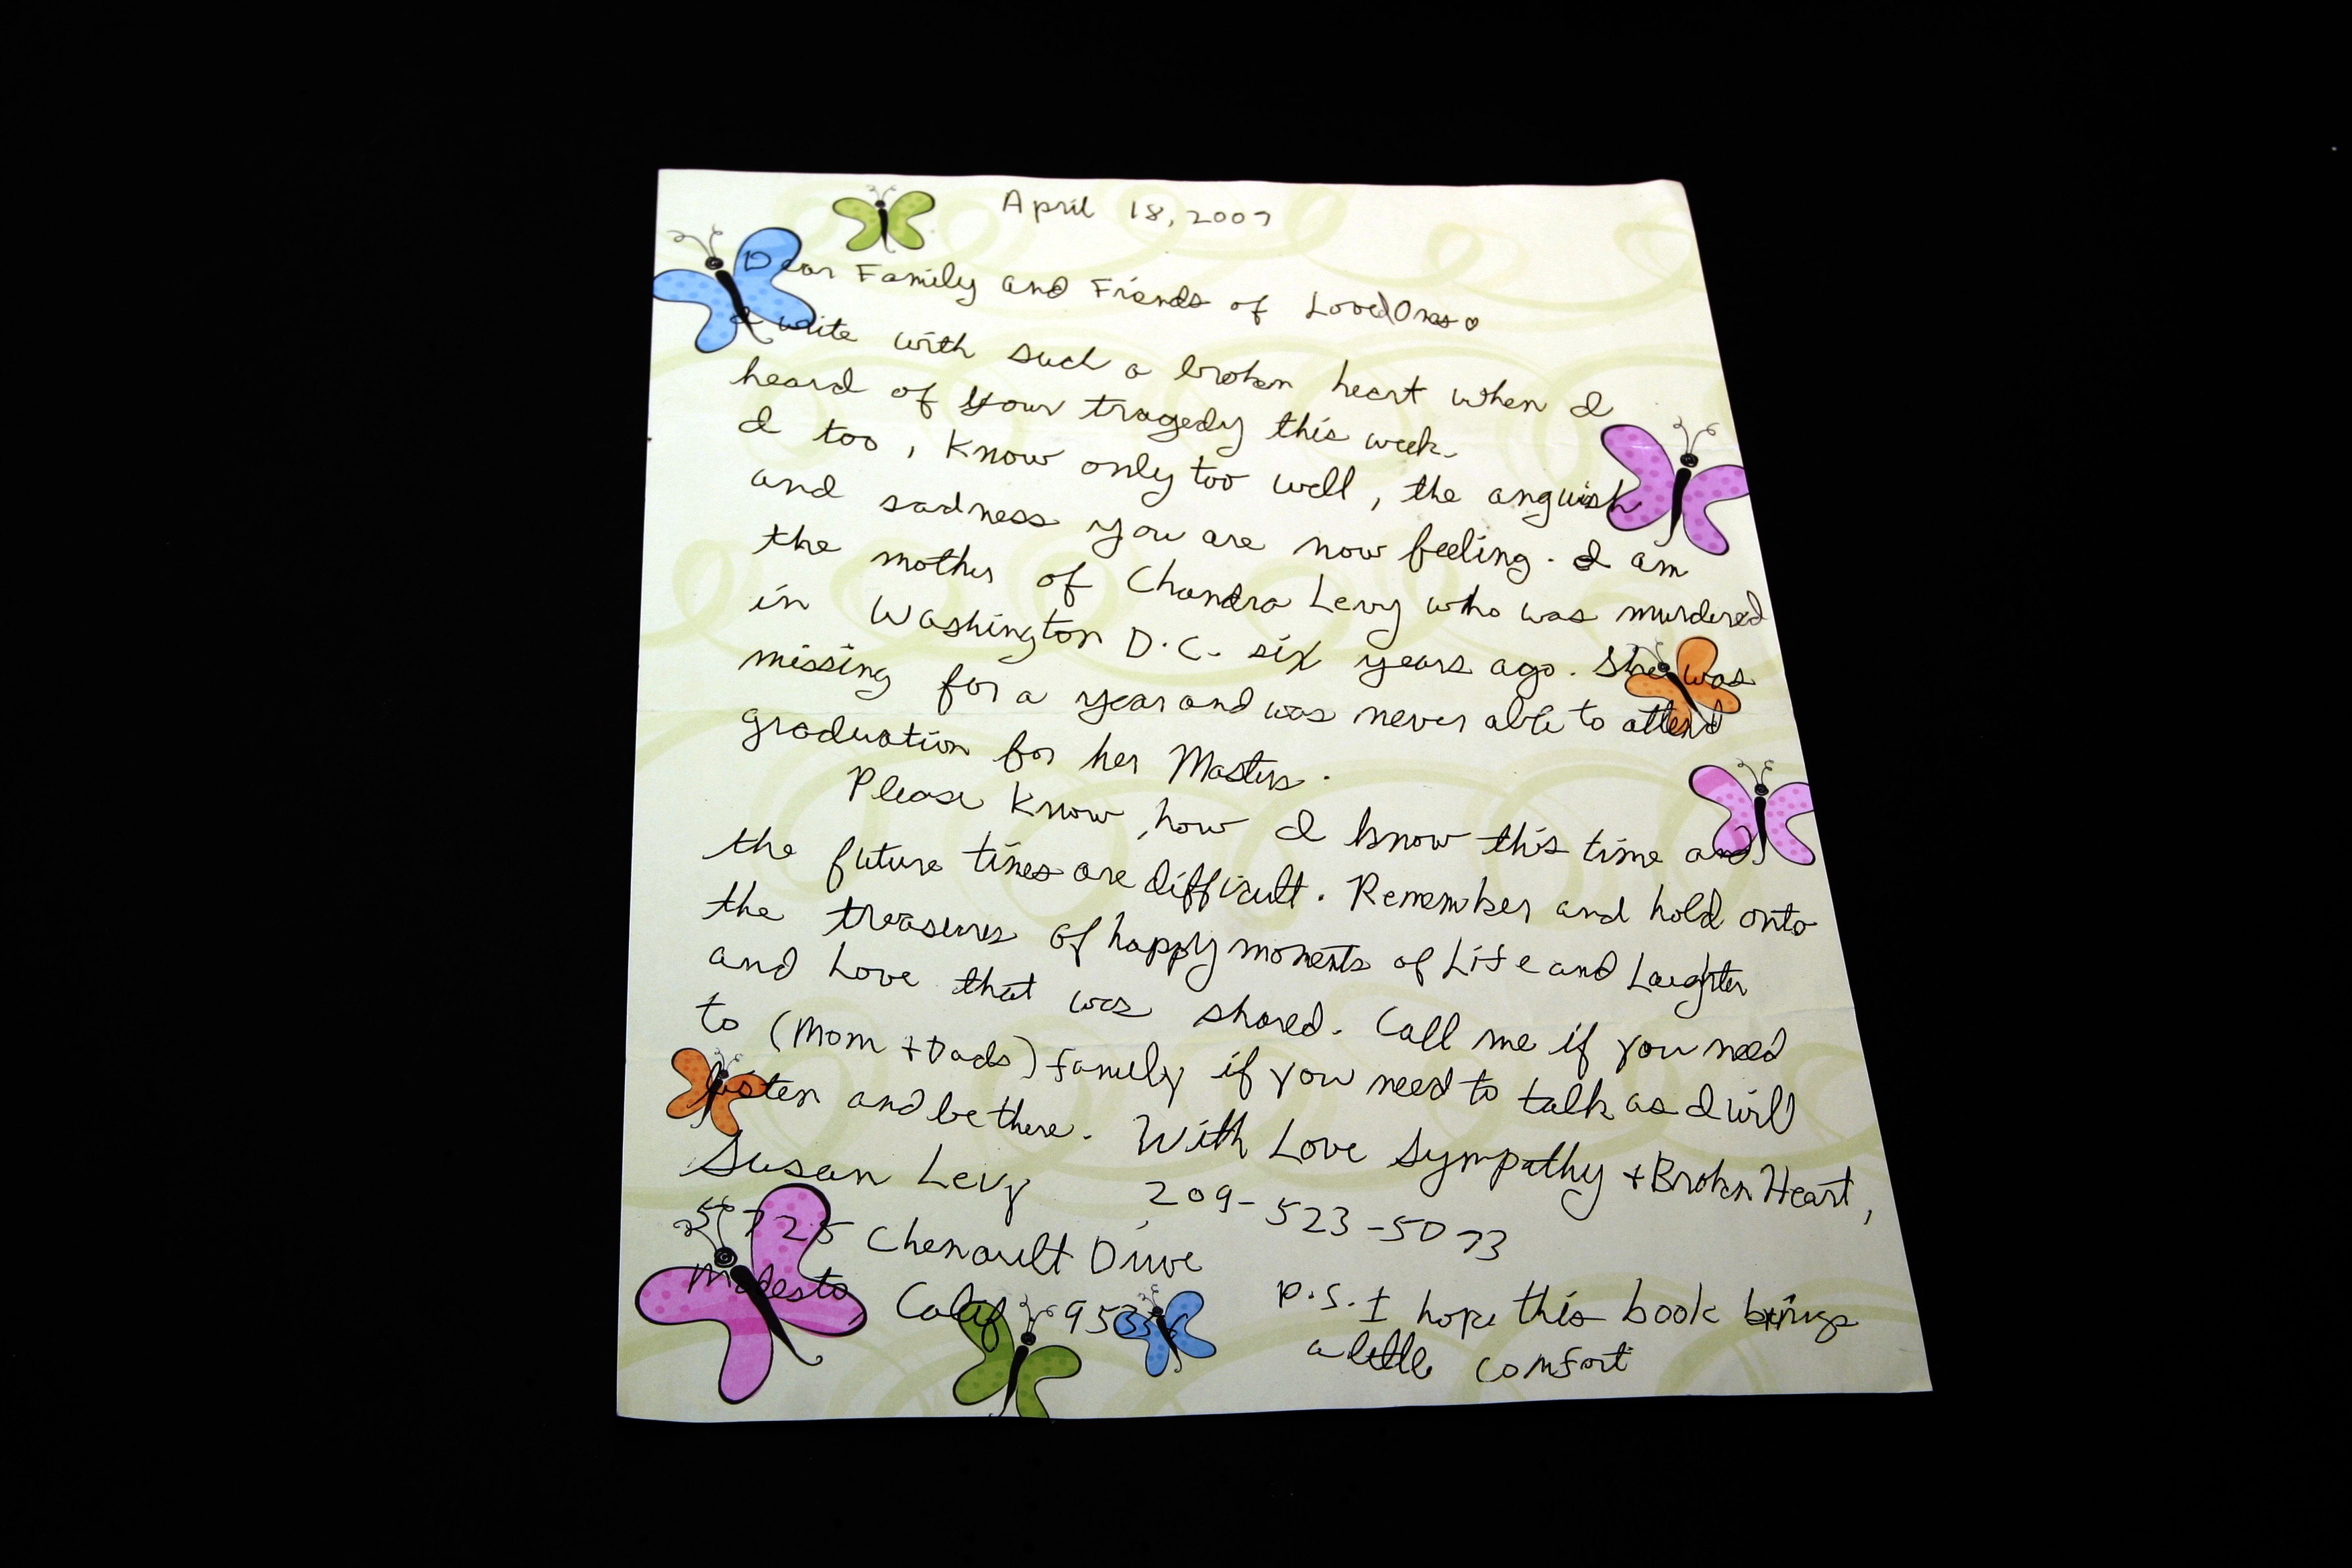 April 18, 2007
Dear Family and Friends of Loved Ones
I write with such a broken heart when I
heard of your tragedy this week.
I too, know only too well, the anguish
and sadness you are now feeling. I am
the mother of Chandra Levy who was murdered
in Washington D.C. six years ago. She was
missing for a year and was never able to attend
graduation for her Masters.
Please know, how I know this time and
the future times are difficult. Remember and hold onto
the treasures of happy moments of Life and Laughter
and Love that was shared. Call me if you need
to (Mom + Dads) family if you need to talk as I will
listen and be there. With Love Sympathy + Broken Heart,
Susan Levy 209-523-5073
5725 Chenault Drive
Modesto, Calif 95356
P.S. I hope this book brings
a little comfort